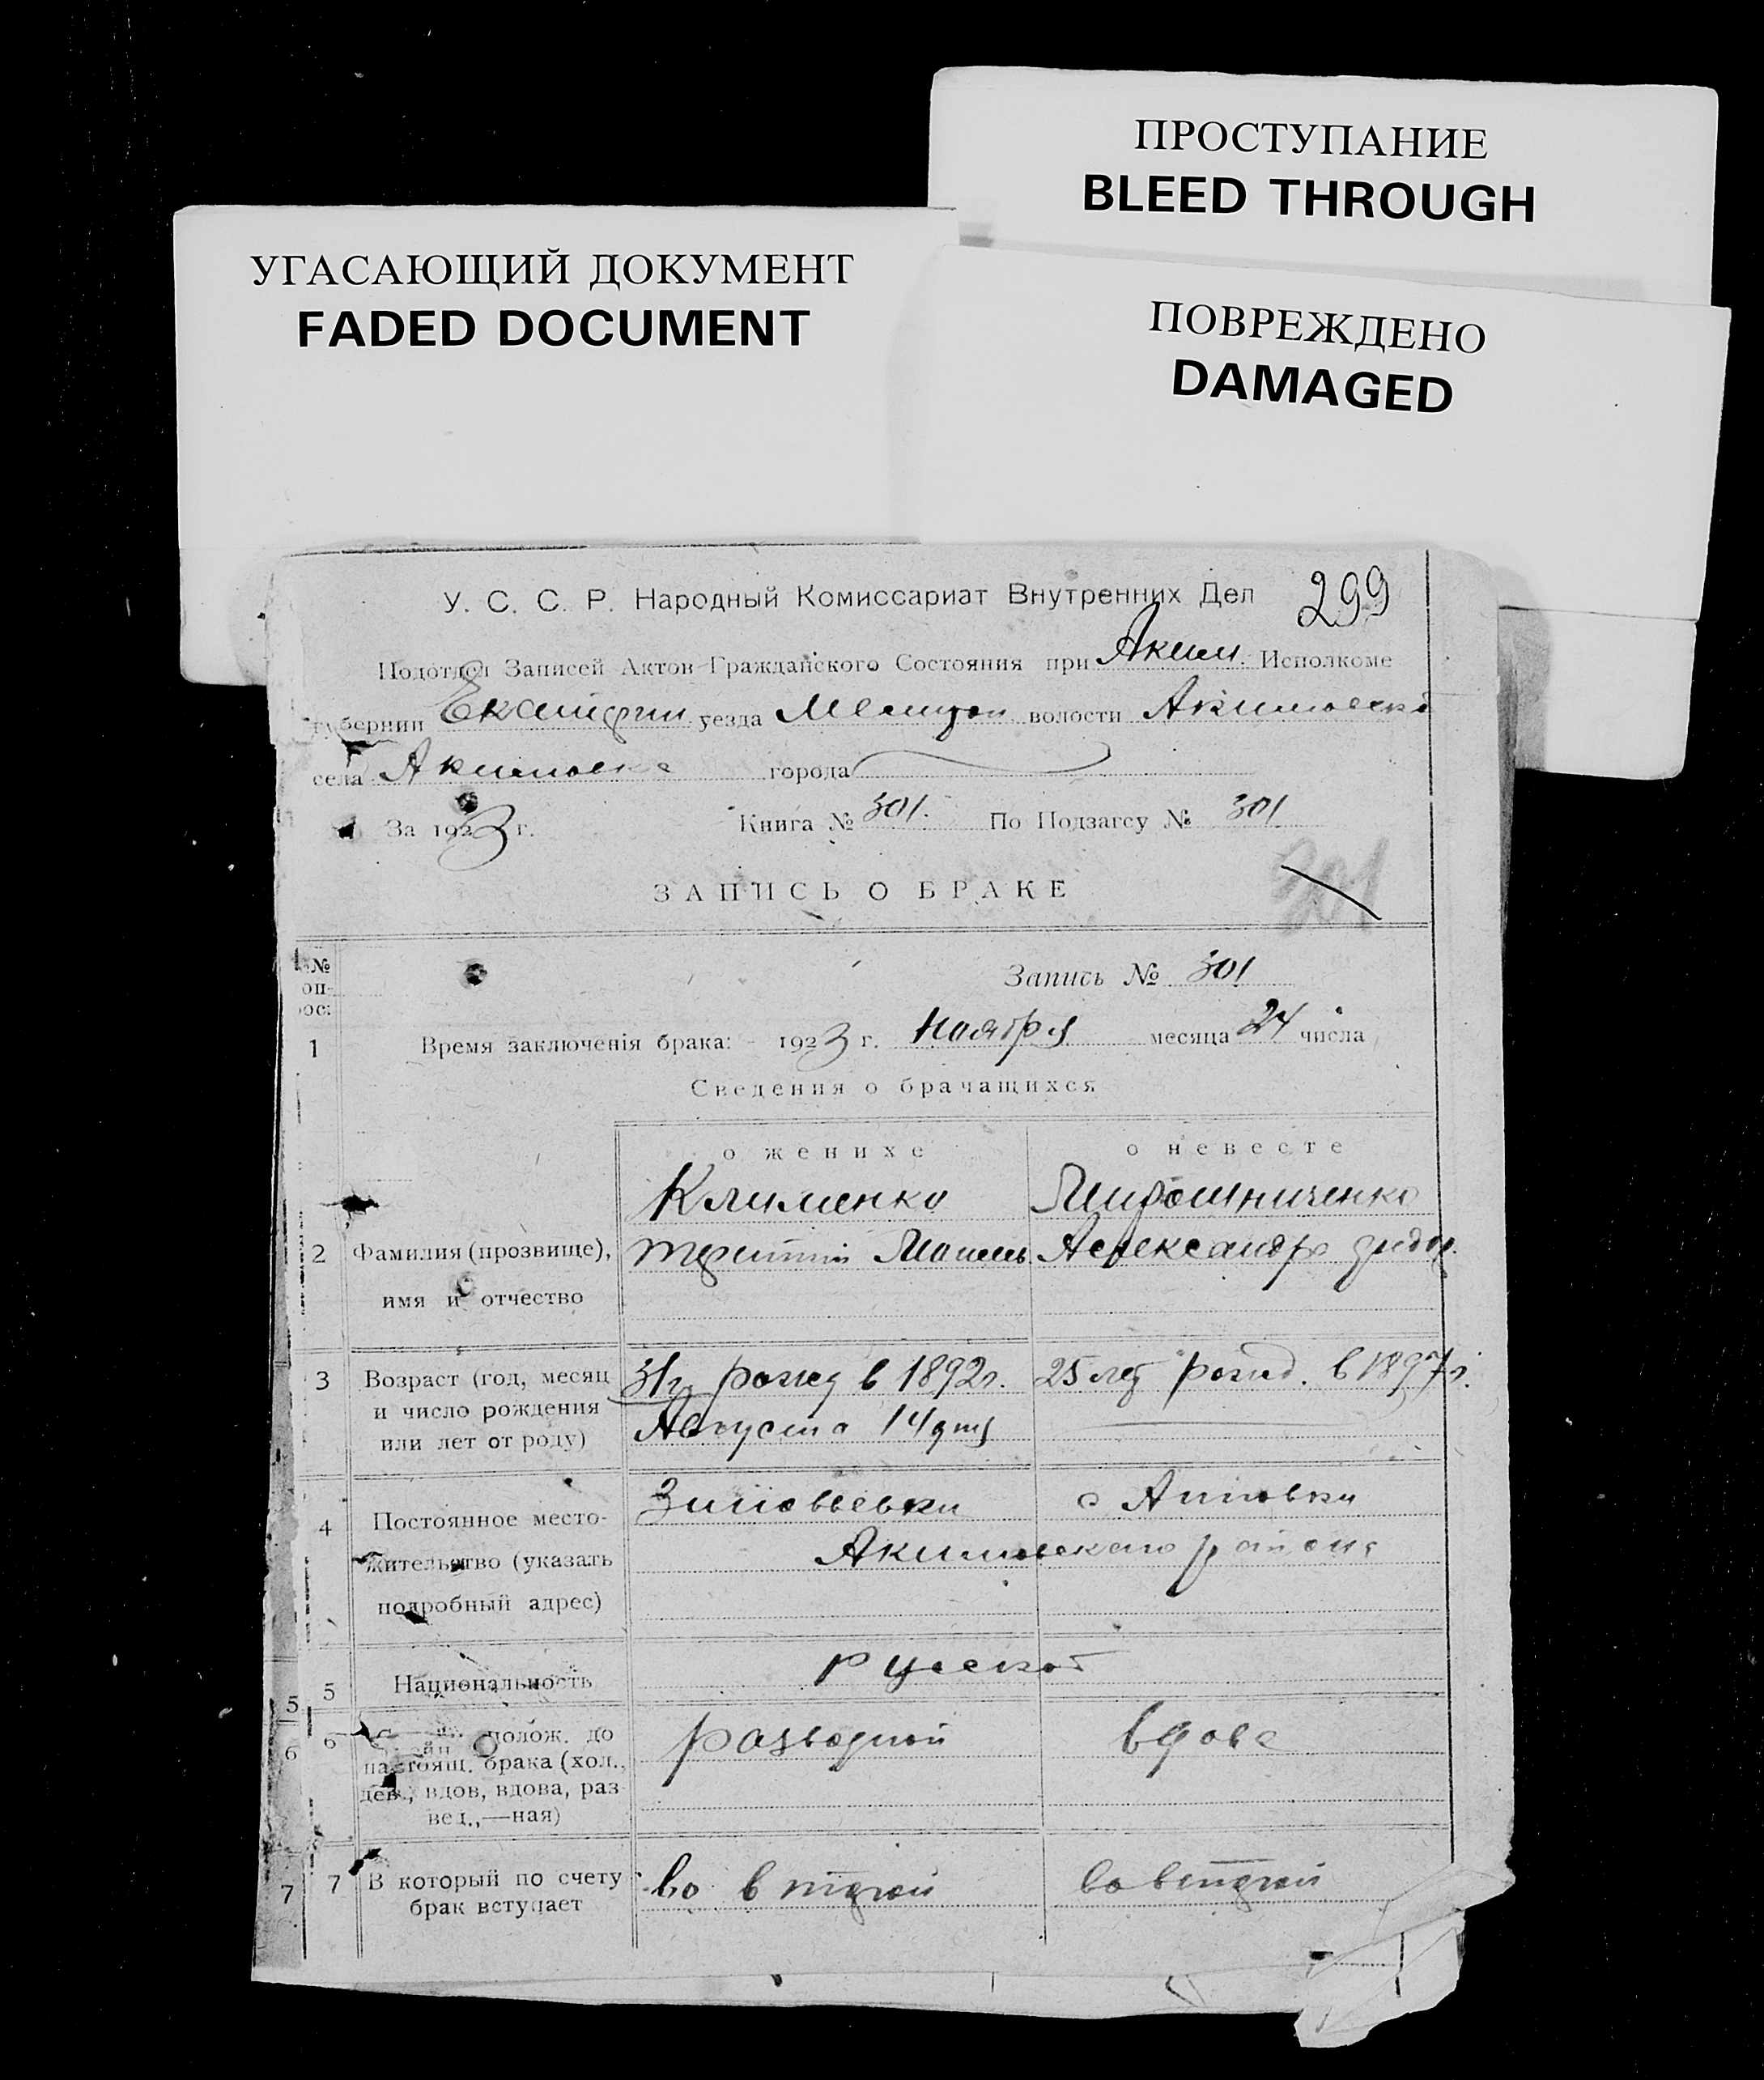 ПРОСТУПАНИЕ
BLEED THROUGH
УГАСАЮЩИЙ ДОКУМЕНТ
FADED DOCUMENT
ПОВРЕЖДЕНО
DAMAGED
У. С. С. Р. Народный Комиссариат Внутренних Дел 299
Подотдел Записей Актов Гражданского Состояния при Аким. Исполкоме
губернии Екатерин уезда Мелитоп волости Акимовской
села Акимовка города
За 1923 г. Книга № 301. По Подзагсу № 301
301
ЗАПИСЬ О БРАКЕ
№
оп-
рос:
Запись № 301
1 Время заключенія брака: - 1923 г. Ноября месяца 24 числа
Сведения о брачащихся
о женихе о невесте
Клименко Мирошниченко
2 Фамилия (прозвище), Александра
имя и отчество
3 Возраст (год, месяц 31 г. рожд в 1892 г. 25 лет рожд. в 1897 г.
и число рождения Августа 14 дня
или лет от роду)
4 Постоянное место- Зиновьевки с
жительство (указать Акимовского района
подробный адрес)
5 5 Национальность русской
6 6 полож. до разводной вдова
настоящ. брака (хол.,
дев., вдов, вдова, раз
вед.,—ная)
7 7 В который по счету во второй во второй
брак вступает